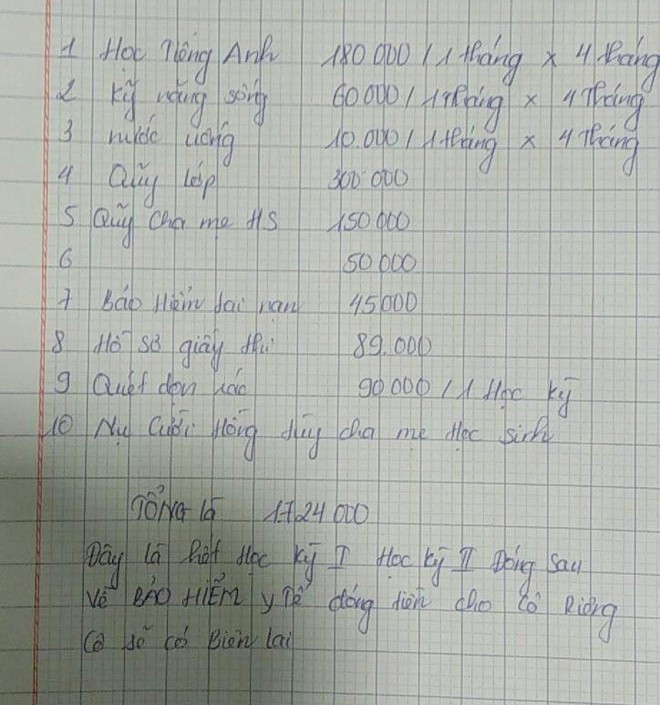 1 Học Tiếng Anh 180 000 / 1 tháng x 4 tháng
2 Kỹ năng sống 60 000 / 1 Tháng x 4 Tháng
3 nước uống 10.000 / 1 tháng x 4 Tháng
4 Qũy lớp 300 000
5 Qũy cha mẹ HS 150 000
6 50 000
7 Bảo Hiểm tai nạn 45000
8 Hồ sơ giấy thi 89.000
9 Quét dọn rác 90 000 / 1 Học kỳ
10 Nụ Cười Hồng tùy cha mẹ Học sinh
TỔNG là 1724 000
Đây là hết Học kỳ I Học kỳ II Đóng sau
Về BẢO HIỂM y Tế đóng tiền cho Cô Riêng
Cô sẽ có Biên lai